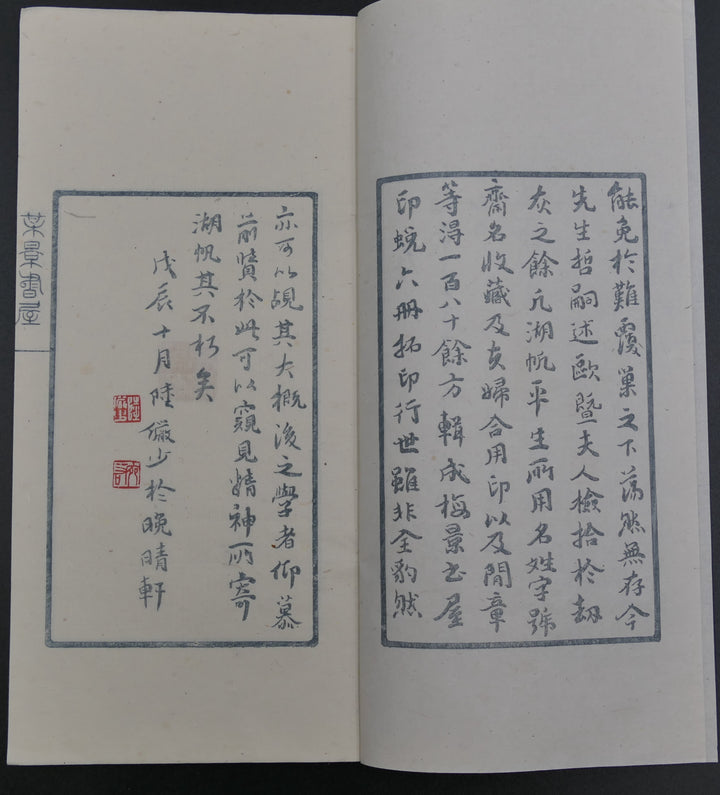 能免於難覆巢之下蕩然無存今
先生哲嗣述歐暨夫人檢拾於劫
灰之餘凡湖帆平生所用名姓字號
齋名收藏及夫婦合用印以及閒章
等得一百八十餘方輯成梅景书屋
印蜕六册拓印行世雖非全豹然
亦可以觇其大概後之學者仰慕
前賢於此可以窺見精神所寄
湖帆其不朽矣
戊辰十月陸儼少於晚晴軒
某景書屋